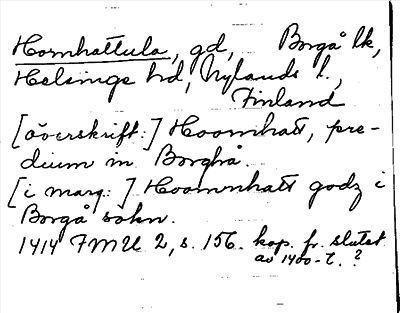 Homhattula, gd, Borgå lk,
Helsinge hd, Nylands l.,
Finland
[överskrift:] Hoomhatt, pre-
dium in Borghå.
[i marg:] Hoomnhatt godz i
Borgå sokn.
1414 FMU 2, s. 156. kop. fr. slutet
av 1400-t.?